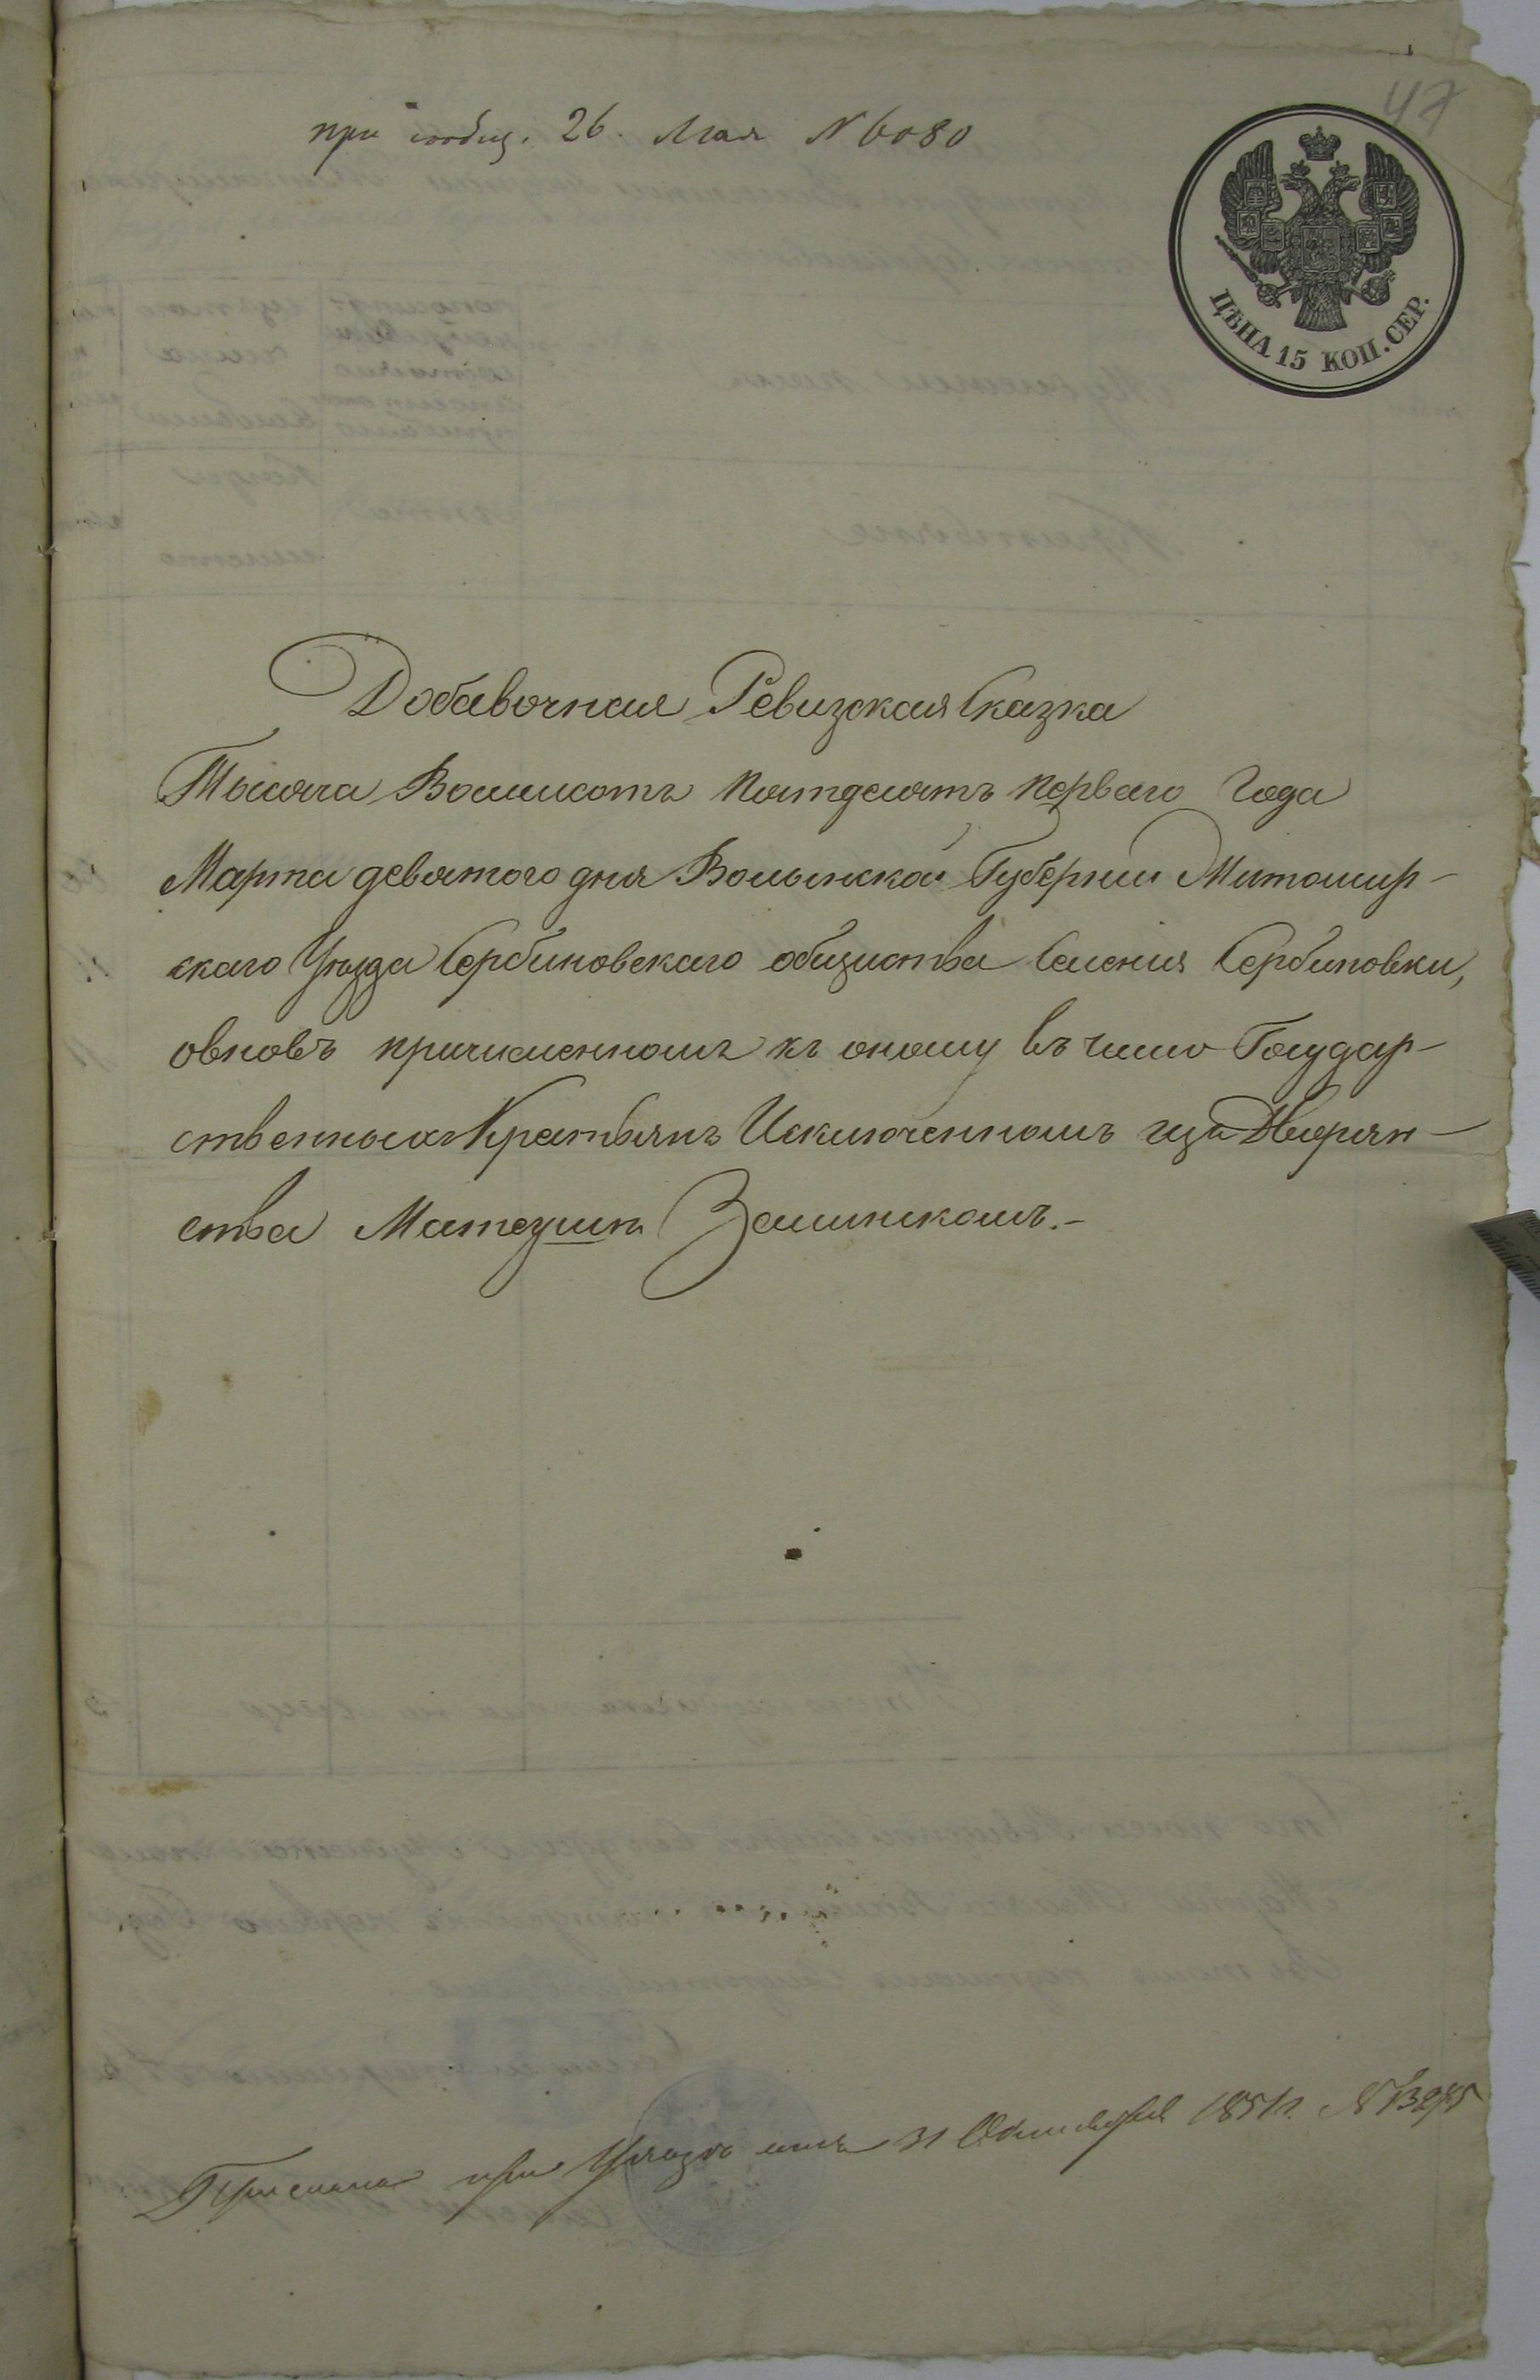 47
при сообщ. 26. Мая N 6080
ЦѢНА 15 КОП. СЕР.
Добавочная Ревизская Сказка
Тысяча Восемсотъ Пятдесятъ Перваго Года
Марта девятого дня Волынской Губерніи Житомир-
скаго Уѣзда Сербиновскаго общества Селенія Сербиновки,
овновъ причисленномъ къ оному въ число Государ-
ственныхъ Крестьянъ Исключенномъ изъ Дворян-
ства Матеушѣ Залинскомъ.-
при Указѣ 31 Октября 1851 г. №